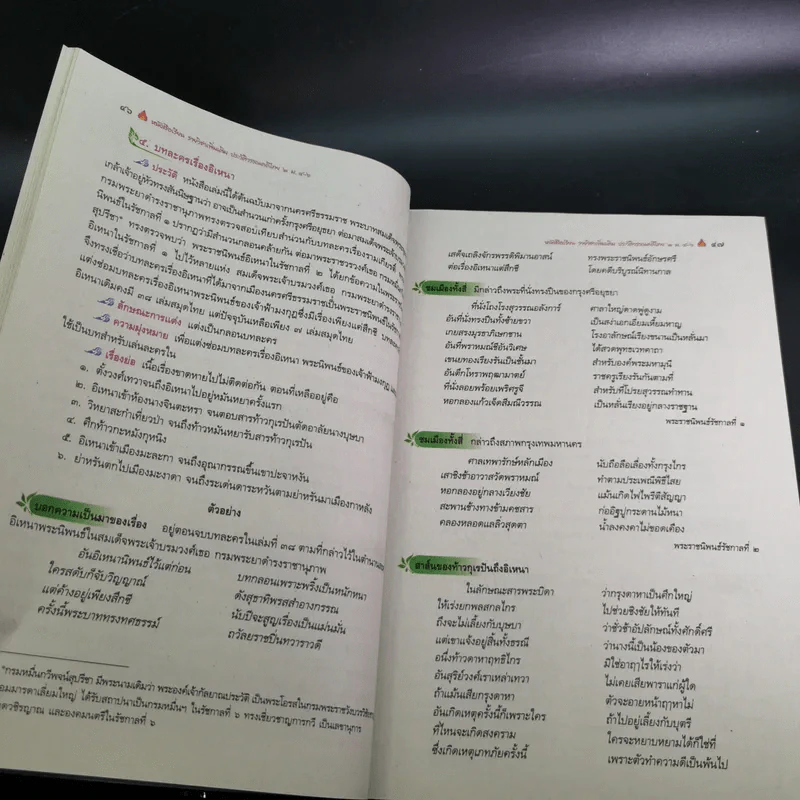 ๔๖ หนังสือเรียน รายวิชาเพิ่มเติม ประวัติวรรณคดีไทย ๒ ม. ๔-๖
๔. บทละครเรื่องอิเหนา
ประวัติ หนังสือเล่มนี้ได้ต้นฉบับมาจากนครศรีธรรมราช พระบาทสมเด็จพระ
เกล้าเจ้าอยู่หัวทรงสันนิษฐานว่า อาจเป็นสำนวนเก่าครั้งกรุงศรีอยุธยา ต่อมาสมเด็จพระเจ้า
กรมพระยาดำรงราชานุภาพทรงตรวจสอบเทียบสำนวนกับบทละครเรื่องรามเกียรติ์
นิพนธ์ในรัชกาลที่ ๑ ปรากฏว่ามีสำนวนกลอนคล้ายกัน ต่อมาพระราชวรวงศ์เธอ กรมหมื่น
สุปรีชา* ทรงตรวจพบว่า พระราชนิพนธ์อิเหนาในรัชกาลที่ ๒ ได้ยกข้อความใน
อิเหนาในรัชกาลที่ ๑ ไปไว้หลายแห่ง สมเด็จพระเจ้าบรมวงศ์เธอ กรมพระยาดำรง
จึงทรงเชื่อว่าบทละครเรื่องอิเหนาที่ได้มาจากเมืองนครศรีธรรมราชเป็นพระราชนิพนธ์ใน
แต่งซ่อมบทละครเรื่องอิเหนาพระนิพนธ์ของเจ้าฟ้ามงกุฎซึ่งมีเรื่องเพียงแค่สึกชี
อิเหนาเดิมคงมี ๓๘ เล่มสมุดไทย แต่ปัจจุบันเหลือเพียง ๗ เล่มสมุดไทย
ลักษณะการแต่ง แต่งเป็นกลอนบทละคร
ความมุ่งหมาย เพื่อแต่งซ่อมบทละครเรื่องอิเหนา พระนิพนธ์ของเจ้าฟ้ามงกุฎ
ใช้เป็นบทสำหรับเล่นละครใน
เรื่องย่อ เนื้อเรื่องขาดหายไปไม่ติดต่อกัน ตอนที่เหลืออยู่คือ
๑. ตั้งวงศ์เทวาจนถึงอิเหนาไปอยู่หมันหยาครั้งแรก
๒. อิเหนาเข้าห้องนางจินตะหรา จนตอบสารท้าวกุเรปันตัดอาลัยนางบุษบา
๓. วิหยาสะกำเที่ยวป่า จนถึงท้าวหมันหยารับสารท้าวกุเรปัน
๔. ศึกท้าวกะหมังกุหนิง
๕. อิเหนาเข้าเมืองมะละกา จนถึงอุณากรรณขึ้นเขาปะจาหงัน
๖. ย่าหรันตกไปเมืองมะงาดา จนถึงระเด่นดาระหวันตามย่าหรันมาเมืองกาหลัง
ตัวอย่าง
บอกความเป็นมาของเรื่อง อยู่ตอนจบบทละครในเล่มที่ ๓๘ ตามที่กล่าวไว้ในตำนาน
อิเหนาพระนิพนธ์ในสมเด็จพระเจ้าบรมวงศ์เธอ กรมพระยาดำรงราชานุภาพ
อันอิเหนานิพนธ์ไว้แต่ก่อน บทกลอนเพราะพริ้งเป็นหนักหนา
ใครสดับก็จับวิญญาณ์ ดังสุธาทิพรสสำอางกรรณ
แต่ค้างอยู่เพียงสึกชี นับปีจะสูญเรื่องเป็นแม่นมั่น
ครั้งนี้พระบาททรงทศธรรม์ ถวัลยราชปิ่นทวาราวดี
*กรมหมื่นกวีพจน์สุปรีชา มีพระนามเดิมว่า พระองค์เจ้ากัลยาณประวัติ เป็นพระโอรสในกรมพระราชวังบวรวิชัย
ได้รับสถาปนาเป็นกรมหมื่นฯ ในรัชกาลที่ ๖ ทรงเชี่ยวชาญการกวี เป็นเลขานุการ
และองคมนตรีในรัชกาลที่ ๖
หนังสือเรียน รายวิชาเพิ่มเติม ประวัติวรรณคดีไทย ๒ ม. ๔-๖ ๔๗
เสด็จเถลิงจักรพรรดิพิมานอาสน์ ทรงพระราชนิพนธ์อักษรศรี
ต่อเรื่องอิเหนาแต่สึกชี โดยคดีบริบูรณ์นิทานกาล
ชมเมืองทั้งสี่ มีกล่าวถึงพระที่นั่งทรงปืนของกรุงศรีอยุธยา
ที่นั่งโถงโรงสุวรรณอลังการ์ ศาลาใหญ่ดาดพู่ดูงาม
อันที่นั่งทรงปืนทั้งซ้ายขวา เป็นสง่าเอกเอี่ยมเหี้ยมหาญ
เกยสรงมุรธาภิเษกชาน โรงอาลักษณ์เรียงขนานเป็นหลั่นมา
อันที่พราหมณ์ชีอันวิเศษ ได้สวดพุทธเวทคาถา
เขนยทองเรียงรันเป็นชั้นมา สำหรับองค์พระมหามุนี
อันตึกโหราพฤฒามาตย์ ราชครูเรียงรันกันตามที่
ที่นั่งลอยพร้อยเพริศรูจี สำหรับที่โปรยสุวรรณทำทาน
หอกลองแก้วเจ็ดสีมณีวรรณ เป็นหลั่นเรียงอยู่กลางราชฐาน
พระราชนิพนธ์รัชกาลที่ ๑
ชมเมืองทั้งสี่ กล่าวถึงสภาพกรุงเทพมหานคร
ศาลเทพารักษ์หลักเมือง นับถือลือเลื่องทั้งกรุงไกร
เสาชิงช้าอาวาสวัดพราหมณ์ ทำตามประเพณีพิธีไสย
หอกลองอยู่กลางเวียงชัย แม้นเกิดไฟไพรีตีสัญญา
สะพานช้างทางข้ามคชสาร ก่ออิฐปูกระดานไม้หนา
คลองหลอดแลลิ่วสุดตา น้ำลงคงคาไม่ขอดเคือง
พระราชนิพนธ์รัชกาลที่ ๒
สาส์นของท้าวกุเรปันถึงอิเหนา
ในลักษณะสารพระบิดา ว่ากรุงดาหาเป็นศึกใหญ่
ให้เร่งยกพลสกลไกร ไปช่วยชิงชัยให้ทันที
ถึงจะไม่เลี้ยงกับบุษบา ว่าชั่วช้าอัปลักษณ์ทั้งศักดิ์ศรี
แต่เขาแจ้งอยู่สิ้นทั้งธรณี ว่านางนี้เป็นน้องของตัวมา
อนึ่งท้าวดาหาฤทธิไกร มิใช่อาฤๅไรให้เร่งว่า
อันสุริย์วงศ์เราเหล่าเทวา ไม่เคยเสียพาราแก่ผู้ใด
ถ้าแม้นเสียกรุงดาหา ตัวจะอายหน้าฤๅหาไม่
อันเกิดเหตุครั้งนี้ก็เพราะใคร ถ้าไปอยู่เลี้ยงกับบุตรี
ที่ไหนจะเกิดสงคราม ใครจะหยาบหยามได้ก็ใช่ที่
ซึ่งเกิดเหตุเภทภัยครั้งนี้ เพราะตัวทำความดีเป็นพ้นไป